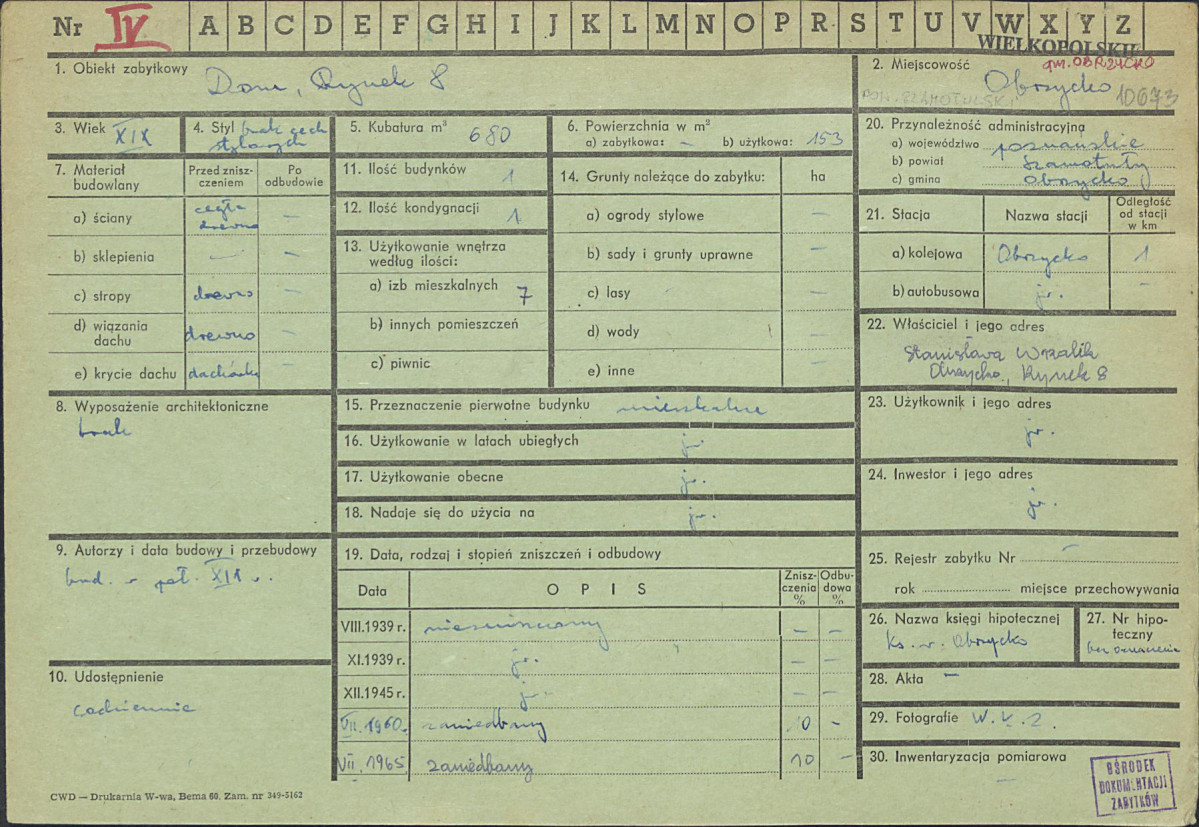 Nr IV A B C D E F G H I J K L M N O P R S T U V W X Y Z
WIELKOPOLSKIE
1. Obiekt zabytkowy Dom, Rynek 8
2. Miejscowość gm. OBRZYCKO
Obrzycko
pow. SZAMOTULSKI 10673
3. Wiek XIX
4. Styl brak cech
stylowych
5. Kubatura m³ 680
6. Powierzchnia w m²
a) zabytkowa: – b) użytkowa: 153
20. Przynależność administracyjna
a) województwo poznańskie
b) powiat Szamotuły
c) gmina Obrzycko
7. Materiał budowlany
Przed zniszczeniem
Po odbudowie
a) ściany cegła drewno –
b) sklepienia – –
c) stropy drewno –
d) wiązania dachu drewno –
e) krycie dachu dachówka –
11. Ilość budynków 1
12. Ilość kondygnacji 1
13. Użytkowanie wnętrza
według ilości:
a) izb mieszkalnych 7
b) innych pomieszczeń
c) piwnic
14. Grunty należące do zabytku: ha
a) ogrody stylowe –
b) sady i grunty uprawne –
c) lasy –
d) wody –
e) inne –
21. Stacja Nazwa stacji Odległość od stacji w km
a) kolejowa Obrzycko 1
b) autobusowa jw. –
22. Właściciel i jego adres
Stanisława Wrzalik
Obrzycko, Rynek 8
8. Wyposażenie architektoniczne
brak
15. Przeznaczenie pierwotne budynku mieszkalne
16. Użytkowanie w latach ubiegłych jw.
17. Użytkowanie obecne jw.
18. Nadaje się do użycia na jw.
23. Użytkownik i jego adres
jw.
24. Inwestor i jego adres
jw.
9. Autorzy i data budowy i przebudowy
bud. w poł. XIX w.
10. Udostępnienie
codziennie
19. Data, rodzaj i stopień zniszczeń i odbudowy
Data O P I S Zniszczenia % Odbudowa %
VIII.1939 r. niezniszczony – –
XI.1939 r. jw. – –
XII.1945 r. jw. – –
VII. 1960. zaniedbany 10 –
VII. 1965 zaniedbany 10 –
25. Rejestr zabytku Nr –
rok miejsce przechowywania
26. Nazwa księgi hipotecznej
Ks. w. Obrzycko
27. Nr hipoteczny
bez oznaczenia
28. Akta –
29. Fotografie W.K.Z.
30. Inwentaryzacja pomiarowa
–
OŚRODEK
DOKUMENTACJI
ZABYTKÓW
CWD — Drukarnia W-wa, Bema 60. Zam. nr 349-5162